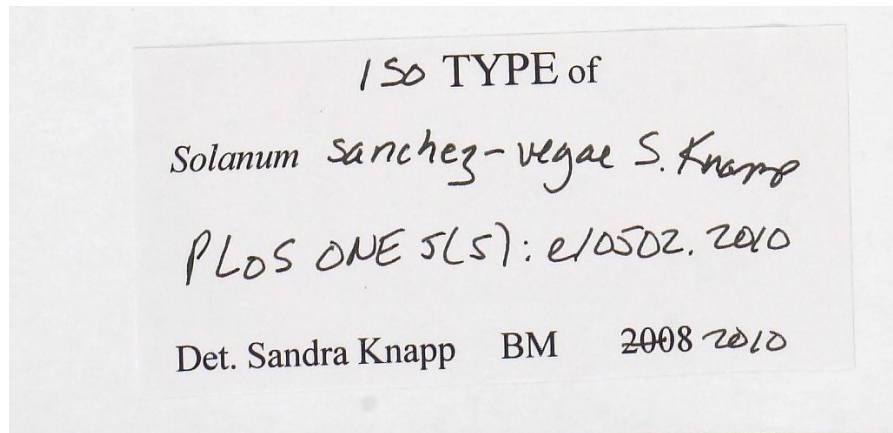 ISO TYPE of
Solanum sanchez-vegae S. Knapp
PLOS ONE 5(5): e10502. 2010
Det. Sandra Knapp BM 2008 2010